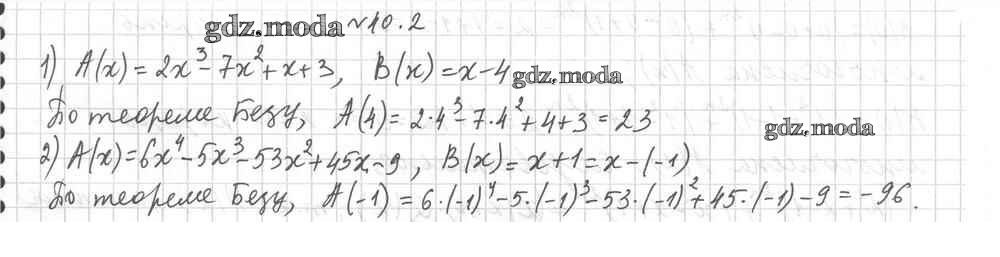 gdz.moda №10.2
1) A(x) = 2x³ - 7x² + x + 3, B(x) = x - 4 gdz.moda
По теореме Безу, A(4) = 2·4³ - 7·4² + 4 + 3 = 23
gdz.moda
2) A(x) = 6x⁴ - 5x³ - 53x² + 45x - 9, B(x) = x + 1 = x - (-1)
По теореме Безу, A(-1) = 6·(-1)⁴ - 5·(-1)³ - 53·(-1)² + 45·(-1) - 9 = -96.